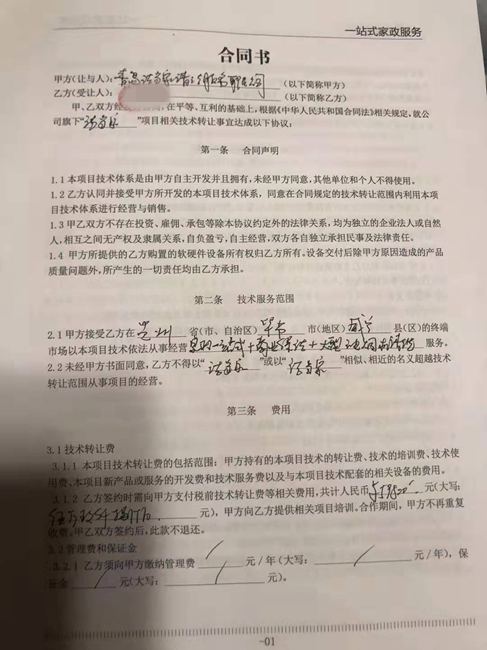 一站式家政服务
合同书
甲方(让与人): (以下简称甲方)
乙方(受让人): (以下简称乙方)
甲、乙双方经 在平等、互利的基础上,根据《中华人民共和国合同法》相关规定,就公
司旗下“ ”项目相关技术转让事宜达成以下协议:
第一条 合同声明
1.1本项目技术体系是由甲方自主开发并且拥有,未经甲方同意,其他单位和个人不得使用。
1.2乙方认同并接受甲方所开发的本项目技术体系,同意在合同规定的技术转让范围内利用本项
目技术体系进行经营与销售。
1.3甲乙双方不存在投资、雇佣、承包等除本协议约定外的法律关系,均为独立的企业法人或自然
人,相互之间无产权及隶属关系,自负盈亏,自主经营,双方各自独立承担民事及法律责任。
1.4 甲方所提供的乙方购置的软硬件设备所有权归乙方所有,设备交付后除甲方原因造成的产品
质量问题外,所产生的一切责任均由乙方承担。
第二条 技术服务范围
2.1甲方接受乙方在 贵州 省(市、自治区) 毕节 市(地区) 县(区)的终端
市场以本项目技术依法从事经营 服务。
2.2未经甲方书面同意,乙方不得以“ ”或以“ ”相似、相近的名义超越技术
转让范围从事项目的经营。
第三条 费用
3.1技术转让费
3.1.1 本项目技术转让费的包括范围:甲方持有的本项目技术的转让费、技术的培训费、技术使
用费、本项目新产品或服务的开发费和技术服务费以及与本项目技术配套的相关设备的费用。
3.1.2 乙方签约时需向甲方支付税前技术转让费等相关费用,共计人民币 元(大写:
元),甲方向乙方提供相关项目培训。合作期间,甲方不再重复
收费,甲乙双方签约后,此款不退还。
3.2管理费和保证金
3.2.1 乙方须向甲方缴纳管理费 / 元/年(大写: / 元/年),保
证金 / 元(大写: / 元)。
-01